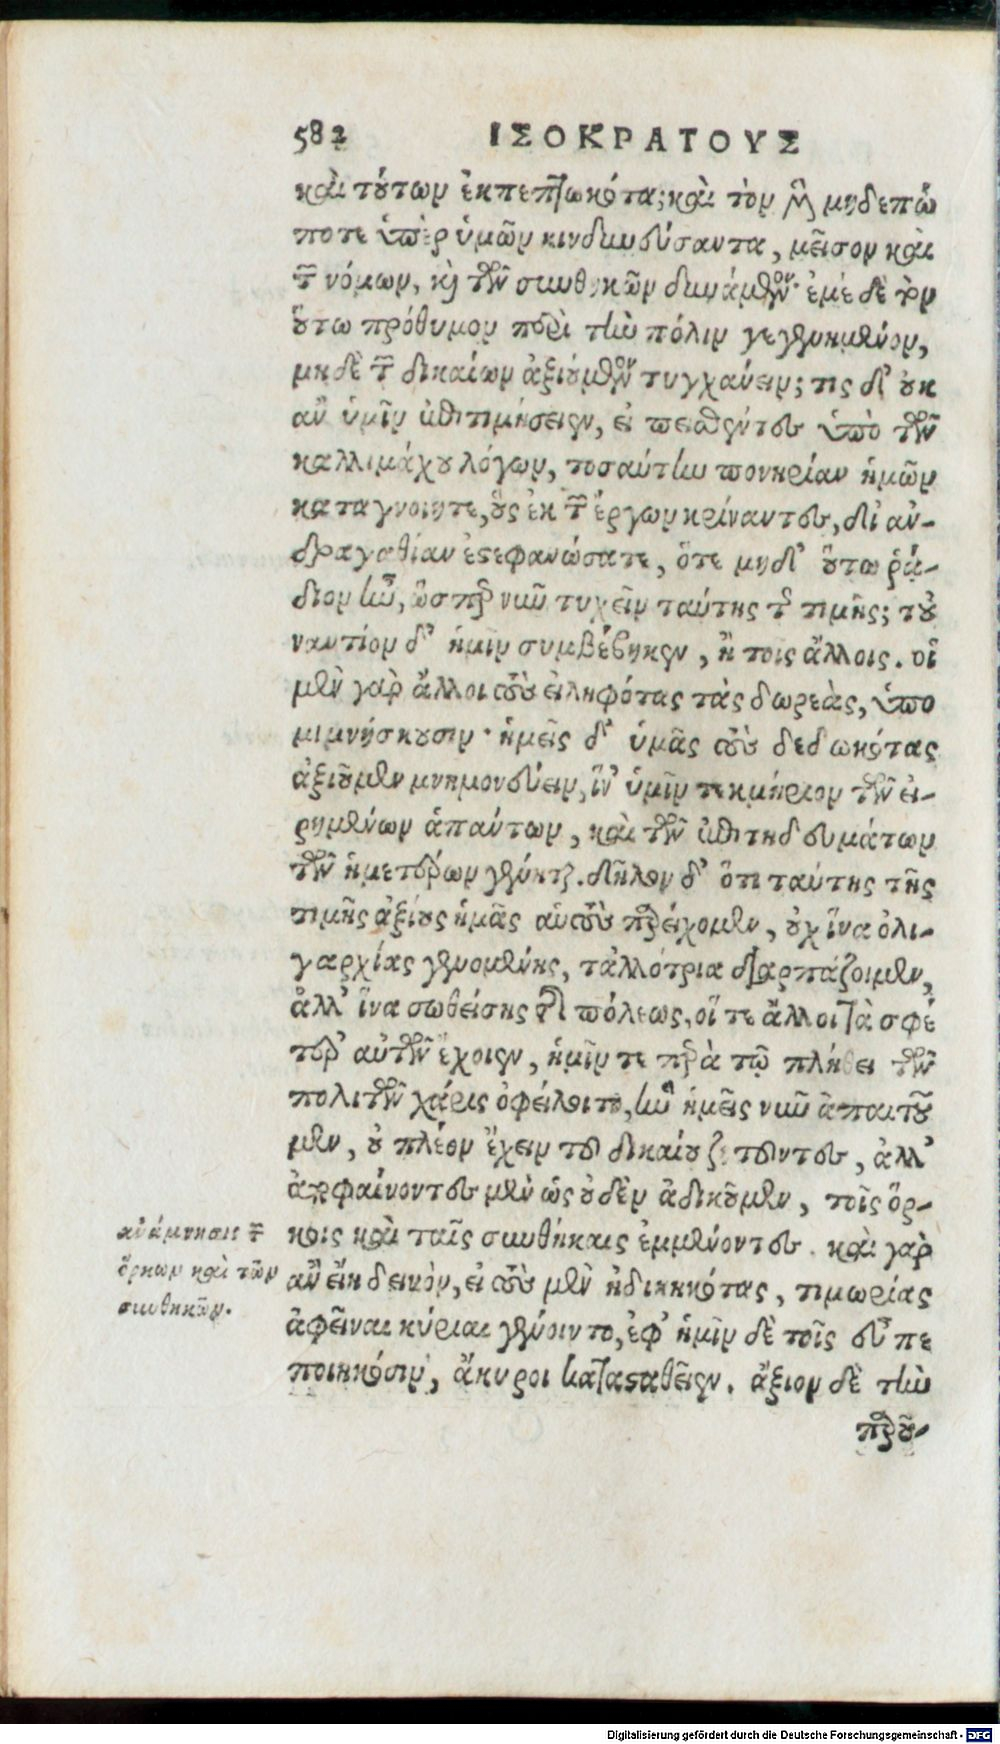 582 ΙΣΟΚΡΑΤΟΥΣ
καὶ τούτων ἐκπεπτωκότα; καὶ τὸν μὲν μηδεπώ
ποτε ὑπὲρ ὑμῶν κινδυνεύσαντα, μεῖζον καὶ
τῶν νόμων, καὶ τῶν συνθηκῶν δυνάμενον· ἐμὲ δὲ τὸν
οὕτω πρόθυμον περὶ τὴν πόλιν γεγενημένον,
μηδὲ τῶν δικαίων ἀξιούμενον τυγχάνειν; τίς δ' οὐκ
ἂν ὑμῖν ἐπιτιμήσειεν, εἰ πεισθέντες ὑπὸ τῶν
καλλιμάχου λόγων, τοσαύτην πονηρίαν ἡμῶν
καταγνοίητε, οὓς ἐκ τῶν ἔργων κρίναντες, δι' ἀν-
δραγαθίαν ἐστεφανώσατε, ὅτε μηδ' οὕτω ῥᾴ-
διον ἦν, ὥσπερ νῦν τυχεῖν ταύτης τῆς τιμῆς; τοὐ
ναντίον δ' ἡμῖν συμβέβηκεν, ἢ τοις ἄλλοις. οἱ
μὲν γὰρ ἄλλοι τοὺς εἰληφότας τὰς δωρεὰς, ὑπο
μιμνήσκουσιν· ἡμεῖς δ' ὑμᾶς τοὺς δεδωκότας
ἀξιοῦμεν μνημονεύειν, ἵν' ὑμῖν τεκμήριον τῶν εἰ-
ρημένων ἁπάντων, καὶ τῶν ἐπιτηδευμάτων
τῶν ἡμετέρων γένηται. δῆλον δ' ὅτι ταύτης τῆς
τιμῆς ἀξίους ἡμᾶς αὐτοὺς παρείχομεν, οὐχ ἵνα ὀλι-
γαρχίας γενομένης, τἀλλότρια διαρπάζοιμεν,
ἀλλ' ἵνα σωθείσης τῆς πόλεως, οἵ τε ἄλλοι τὰ σφέ
τερ' αὐτῶν ἔχοιεν, ἡμῖν τε παρὰ τῷ πλήθει τῶν
πολιτῶν χάρις ὀφείλοιτο, ἣν ἡμεῖς νῦν ἀπαιτοῦ
μεν, οὐ πλέον ἔχειν τοῦ δικαίου ζητοῦντες, ἀλλ'
ἀποφαίνοντες μὲν ὡς οὐδὲν ἀδικοῦμεν, τοῖς ὅρ-
κοις καὶ ταῖς συνθήκαις ἐμμένοντες. καὶ γὰρ
ἂν εἴη δεινὸν, εἰ τοὺς μὲν ἠδικηκότας, τιμωρίας
ἀφεῖναι κύριαι γένοιντο, ἐφ' ἡμῖν δὲ τοῖς εὖ πε
ποιηκόσιν, ἄκυροι κατασταθεῖεν. ἄξιον δὲ τὴν
παροῦ-
ἀνάμνησις τῶν
ὅρκων καὶ τῶν
συνθηκῶν.
Digitalisierung gefördert durch die Deutsche Forschungsgemeinschaft - DFG